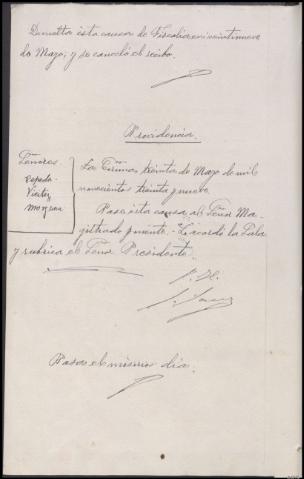 Devuelta esta causa de Fiscalia en veintinueve
de Mayo; y se canceló el recibo.
Providencia.
Señores
Cepeda
Vieitez
Las Palmas, treinta de Mayo de mil
novecientos treinta y nueve
Pase esta causa al Señor Ma-
gistrado ponente. Lo acordó la Sala
y rubrica el Señor Presidente.
Pasa el mismo día.